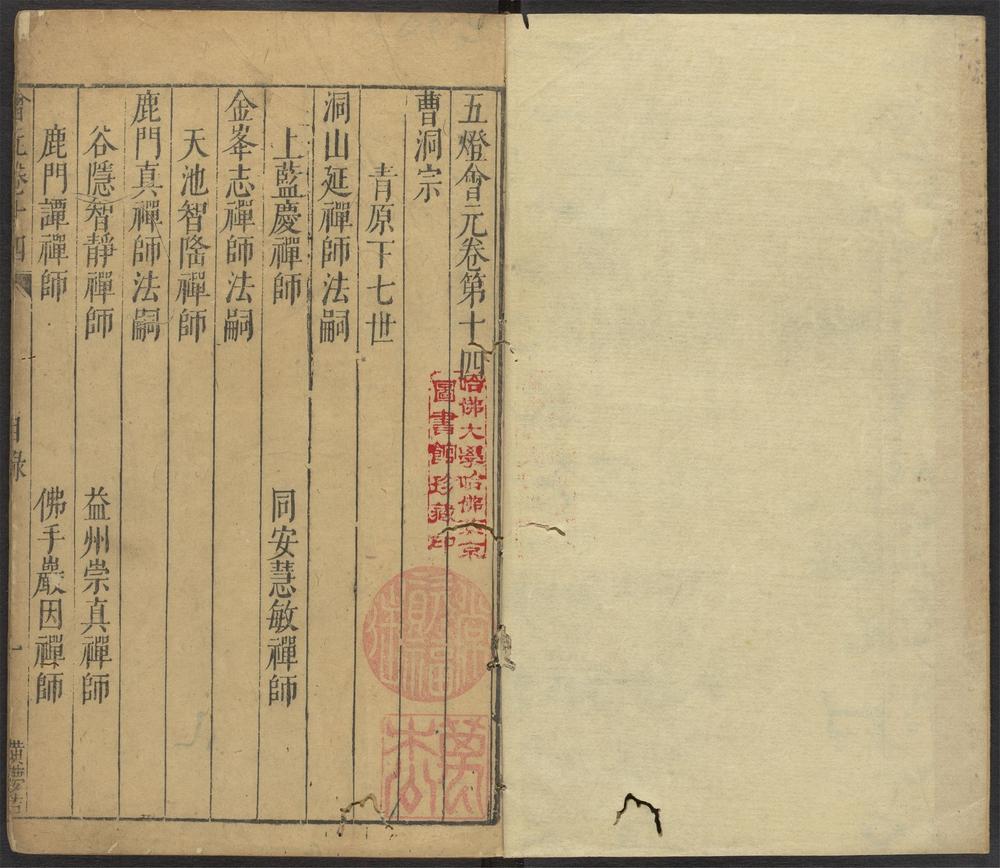 五燈會元卷第十四
曹洞宗
青原下七世
洞山延禪師法嗣
上藍慶禪師 同安慧敏禪師
金峯志禪師法嗣
天池智隆禪師
鹿門真禪師法嗣
谷隱智靜禪師 益州崇真禪師
鹿門譚禪師 佛手巖因禪師
會元卷十四 目錄 一
哈佛大學哈佛燕京
圖書館珍藏印